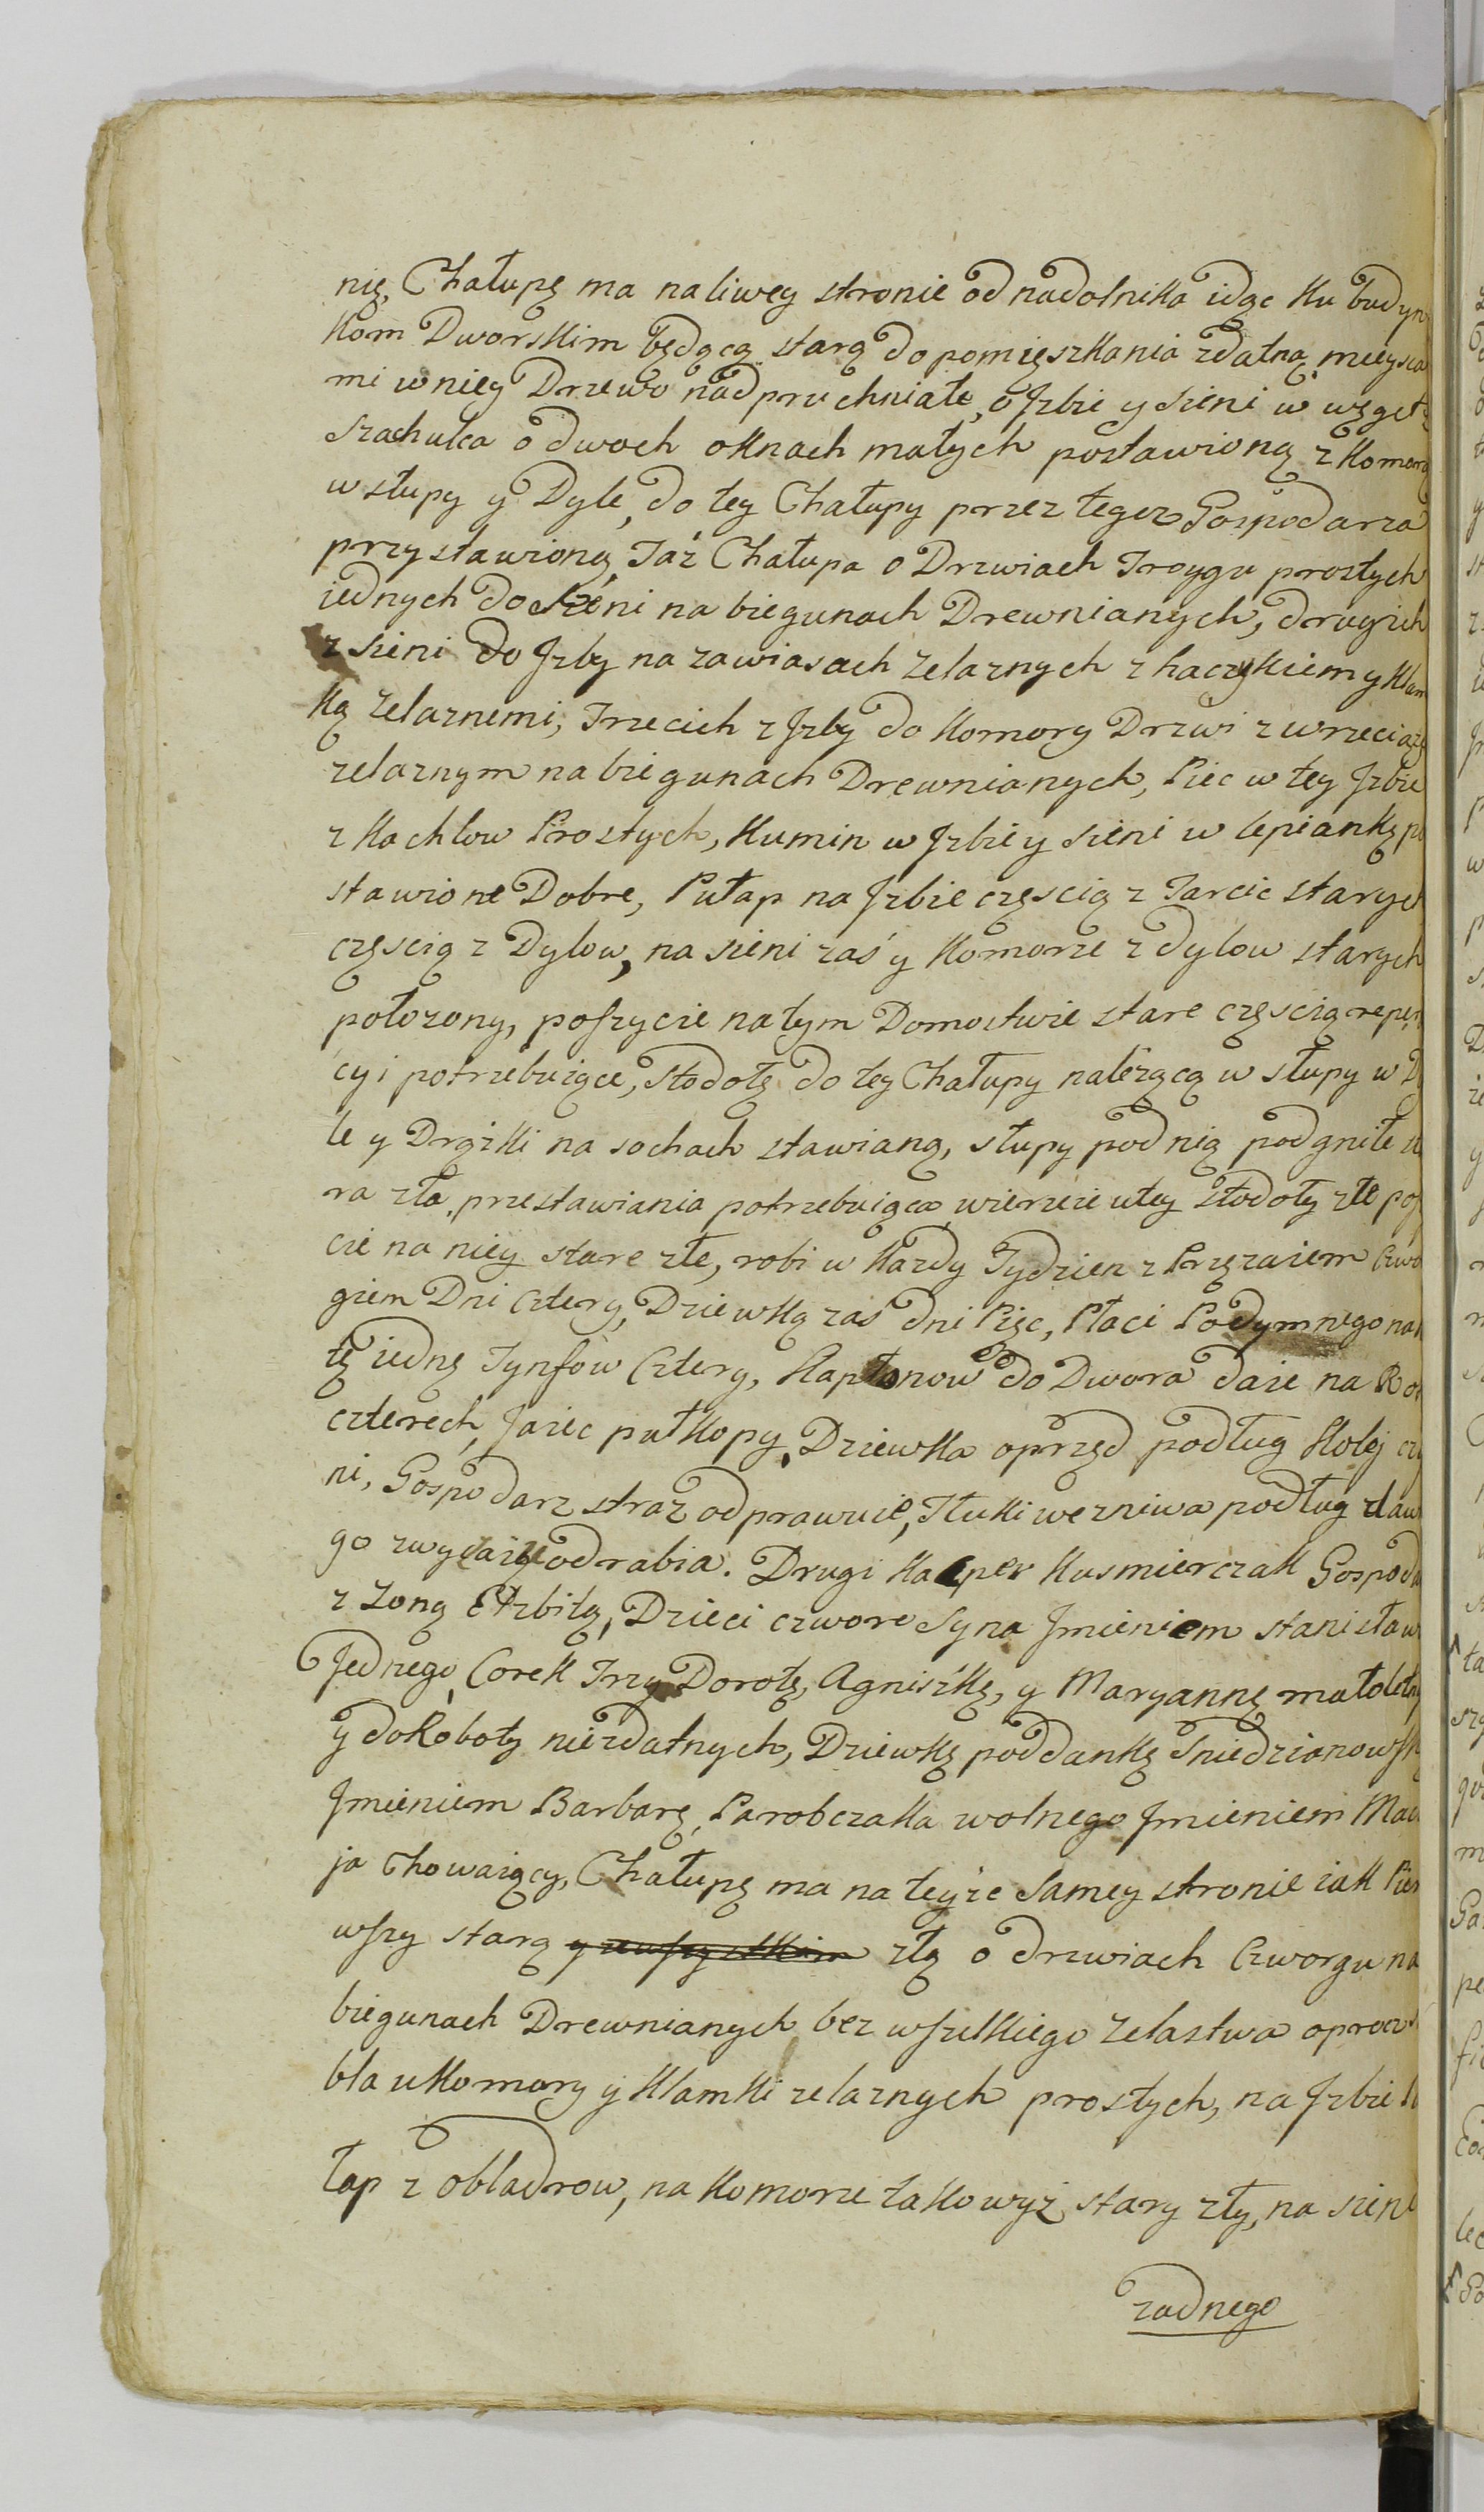 nię, Chałupę ma na liwey stronie od nadolnika idąc ku budyn
kom Dworskim będącą starą do pomięszkania zdatną, mieysca
mi w niey Drzewo nadpruchniałe, o Jzbie y sieni w węgeł
szachulca o dwoch oknach małych postawioną z komorą
w słupy y Dyle, do tey Chałupy przez tegoz Gospodarza
przystawioną, Taż Chałupa o Drzwiach Troygu prostych
iednych do Sieni na biegunach Drewnianych, drugich
z sieni do Jzby na zawiasach żelaznych z haczykiem y klam
ką żelaznemi, Trzecich z Jzby do Komory Drzwi z wrzeciądz
zelaznym na biegunach Drewnianych, Piec w tey Jzbie
z kachlow Prostych, Kumin w Jzbie y sieni w lepiankę po
stawione Dobre, Pułap na Jzbie częscią z Tarcic starych
częscią z Dylow, na sieni zaś y Komorze z dylow starych
położony, poszycie na tym Domostwie stare częscią repe
cyi potrzebuiące, Stodołę do tey Chałupy należącą w słupy w Dy
le y Drążki na sochach stawianą, słupy pod nią podgniłe
ra zła, przestawiania potrzebuiąca, wierzeie u tey stodoły złe pos
cie na niey stare złe, robi w każdy Tydzien z Przęzaiem Czwo
giem Dni Cztery, Dziewką zaś dni Pięc, Płaci Podymnego na
tę iednę Tynfow Cztery, Kapłonow do Dwora daie na Rok
czterech, Jaiec puł kopy, Dziewka oprzęd podług Kolej czy
ni, Gospodarz straż odprawuie, Tłuki we zniwa podług daw
go zwyczaiu odrabia. Drugi Kacper Kusmierczak Gospoda
z Zoną Elzbitą, Dzieci czworo Syna Jmieniem Stanisław
Jednego, Corek Trzy Dorotę, Agniszkę, y Maryannę małoletny
y do Roboty niezdatnych, Dziewkę poddankę Gniedzianowsk
Jmieniem Barbarę, Parobczaka wolnego Jmieniem Mac
ja chowaiący, Chałupę ma na teyże Samey stronie iak Pier
wszy starą y zewszystkim złą o drzwiach Czworgu na
biegunach Drewnianych bez wszelkiego żelastwa oprocz
bla u Komory y Klamki zelaznych prostych, na Jzbie
łap z obladrow, na komorze takowyż stary zły, na sieni
żadnego